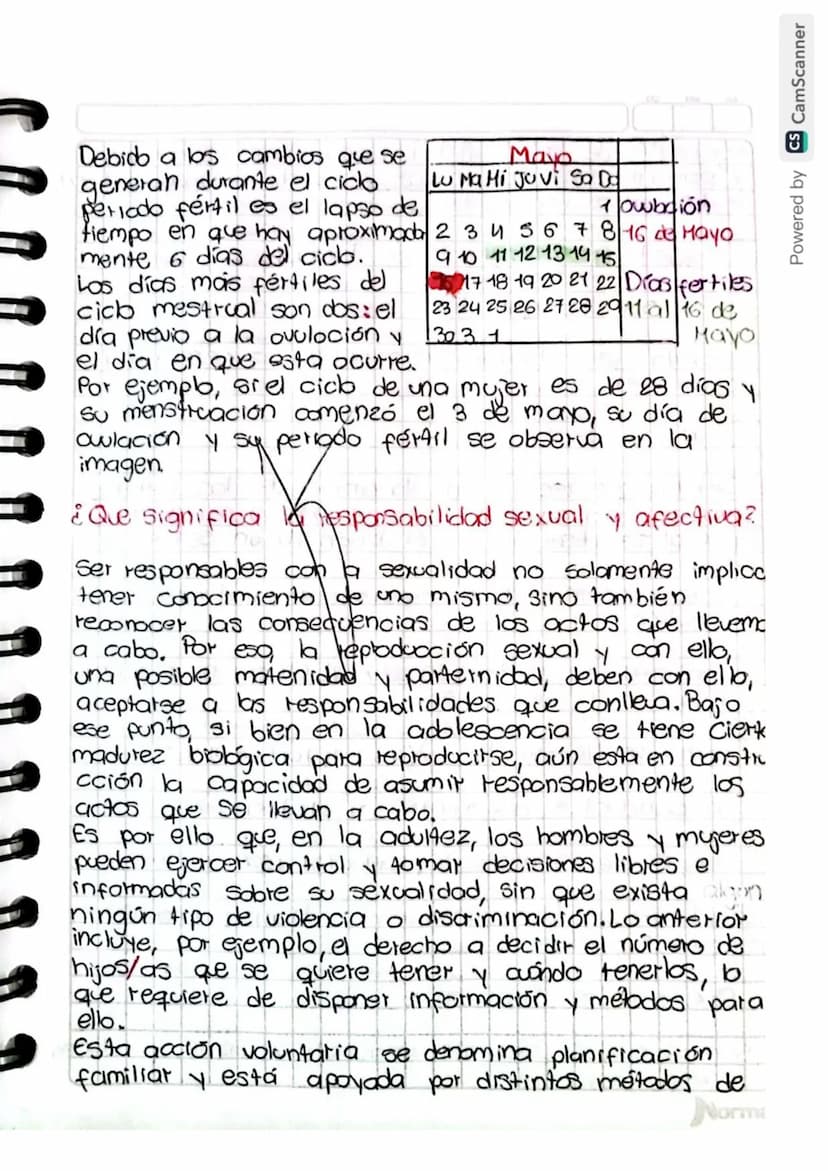 Debido a los cambios que se
generan durante el ciclo
periodo fértil es el lapso de
tiempo en que hay aproximada
mente 6 días del ciclo.
Los días más fértiles del
ciclo mestrual son dos: el
día previo a la ovulación y
el día en que esta ocurre.
Mayo
Lu Ma Mi Ju Vi Sa Do
1
2 3 4 5 6 7 8
9 10 11 12 13 14 15
16 17 18 19 20 21 22
23 24 25 26 27 28 29
30 31
Ovulación
16 de Mayo
Días fertiles
11 al 16 de
Mayo
Por ejemplo, si el ciclo de una mujer es de 28 días y
su menstruación comenzó el 3 de mayo, su día de
ovulación y su periodo fértil se observa en la
imagen.
¿Que significa la responsabilidad sexual y afectiva?
Ser responsables con la sexualidad no solamente implica
tener conocimiento de uno mismo, sino también
reconocer las consecuencias de los actos que llevemo
a cabo. Por eso, la reproducción sexual y con ello,
una posible matenidad y parternidad, deben con ello,
aceptarse a las responsabilidades que conlleva. Bajo
ese punto, si bien en la adolescencia se tiene cierta
madurez biológica para reproducirse, aún esta en constru
cción la capacidad de asumir responsablemente los
actos que se llevan a cabo.
Es por ello que, en la adultez, los hombres y mujeres
pueden ejercer control y tomar decisiones libres e
informadas sobre su sexualidad, sin que exista
ningún tipo de violencia o discriminación. Lo anterior
incluye, por ejemplo, el derecho a decidir el número de
hijos/as que se quiere tener y cuándo tenerlos, lo
que requiere de disponer información y métodos para
ello.
Esta acción voluntaria se denomina planificación
familiar y está apoyada por distintos métodos de
Norma
Powered by CS CamScanner